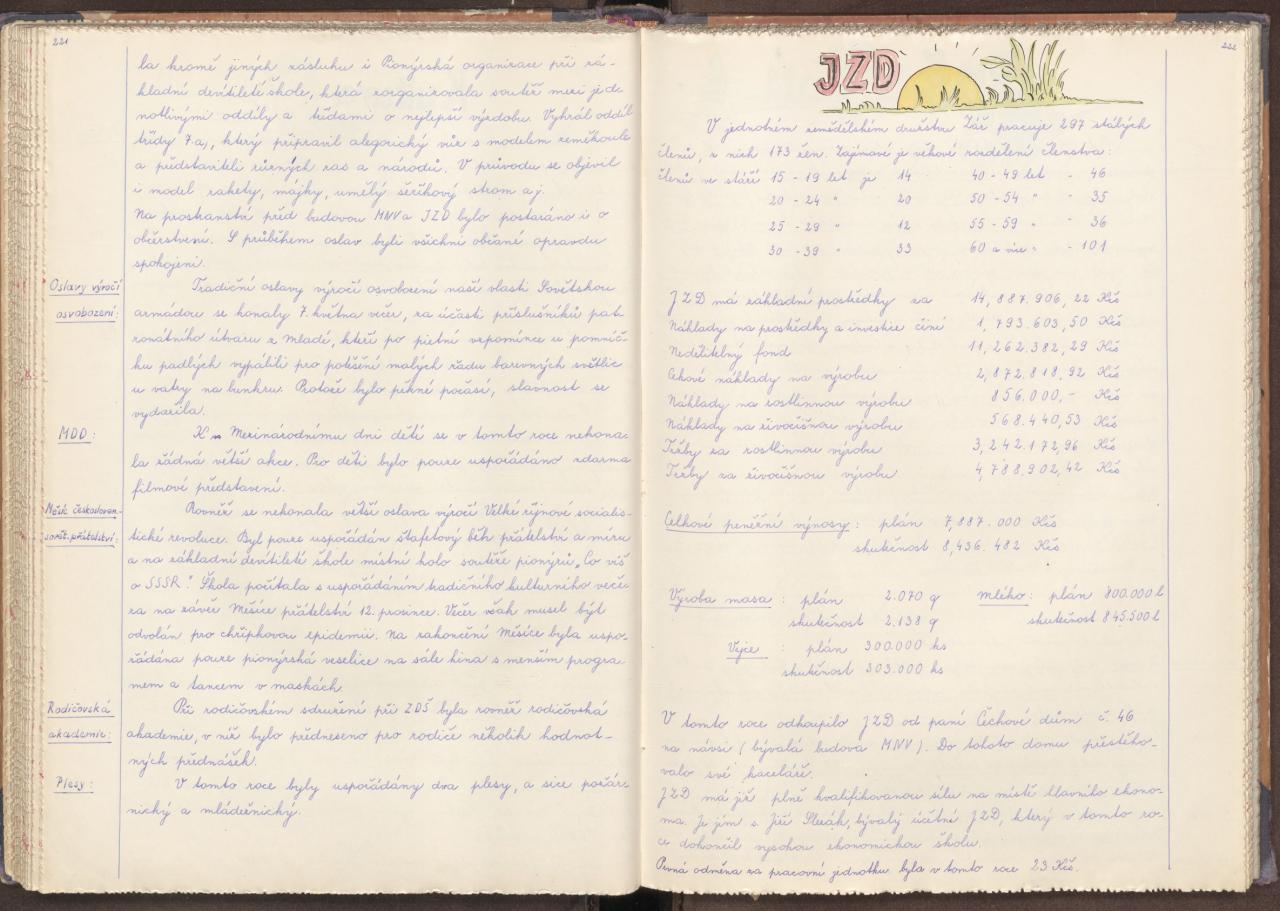 221
la kromě jiných zásluhu i Pionýrská organizace při zá-
kladní devítileté škole, která zorganizovala soutěž mezi jed-
notlivými oddíly a třídami o nejlepší výzdobu. Vyhrál oddíl
třídy 7.a, který připravil alegorický vůz s modelem zeměkoule
a představiteli různých ras a národů. V průvodu se objevil
i model rakety, májky, umělý šeříkový strom a j.
Na prostranství před budovou MNV a JZD bylo postaráno i o
občerstvení. S průběhem oslav byli všichni občané opravdu
spokojeni.
Oslavy výročí
osvobození:
Tradiční oslavy výročí osvobození naší vlasti Sovětskou
armádou se konaly 7. května večer, za účasti příslušníků pat-
ronátního útvaru z Mladé, kteří po pietní vzpomínce u pomníč-
ku padlých vypálili pro potěšení malých řadu barevných světlic
u vatry na bunkru. Protože bylo pěkné počasí, slavnost se
vydařila.
MDD:
K Mezinárodnímu dni dětí se v tomto roce nekona-
la řádná větší akce. Pro děti bylo pouze uspořádáno zdarma
filmové představení.
Měsíc českosloven.
sovět. přátelství:
Rovněž se nekonala větší oslava výročí Velké říjnové socialis-
tické revoluce. Byl pouze uspořádán štafetový běh přátelství a míru
a na základní devítileté škole místní kolo soutěže pionýrů „Co víš
o SSSR". Škola počítala s uspořádáním tradičního kulturního veče-
ra na závěr Měsíce přátelství 12. prosince. Večer však musel být
odvolán pro chřipkovou epidemii. Na zakončení Měsíce byla uspo-
řádána pouze pionýrská veselice na sále kina s menším progra-
mem a tancem v maskách.
Rodičovská
akademie:
Při rodičovském sdružení při ZDŠ byla rovněž rodičovská
akademie, v níž bylo předneseno pro rodiče několik hodnot-
ných přednášek.
Plesy:
V tomto roce byly uspořádány dva plesy, a sice požár-
nický a mládežnický.
222
JZD
V jednotném zemědělském družstvu Zář pracuje 297 stálých
členů, z nich 173 žen. Zajímavé je věkové rozdělení členstva:
členů ve stáří 15 - 19 let je 14 40 - 49 let - 46
20 - 24 " 20 50 - 54 " - 35
25 - 29 " 12 55 - 59 " - 36
30 - 39 " 33 60 a více " - 101
JZD má základní prostředky za 14,887.906,22 Kčs
Náklady na prostředky a investice činí 1,793.603,50 Kčs
Nedělitelný fond 11,262.382,29 Kčs
Celkové náklady na výrobu 2,872.818,92 Kčs
Náklady na rostlinnou výrobu 856.000,- Kčs
Náklady na živočišnou výrobu 568.440,53 Kčs
Tržby za rostlinnou výrobu 3,242.172,96 Kčs
Tržby za živočišnou výrobu 4,788.902,42 Kčs
Celkové peněžní výnosy: plán 7,887.000 Kčs
skutečnost 8,436.482 Kčs
Výroba masa: plán 2.070 q mléko: plán 800.000 l
skutečnost 2.138 q skutečnost 845.500 l
Vejce: plán 300.000 ks
skutečnost 303.000 ks
V tomto roce odkoupilo JZD od paní Čechové dům č. 46
na návsi (bývalá budova MNV). Do tohoto domu přestěho-
valo své kanceláře.
JZD má již plně kvalifikovanou sílu na místě hlavního ekono-
ma. Je jím s. Jiří Slezák, bývalý účetní JZD, který v tomto ro-
ce dokončil vysokou ekonomickou školu.
Pevná odměna za pracovní jednotku byla v tomto roce 23 Kčs.